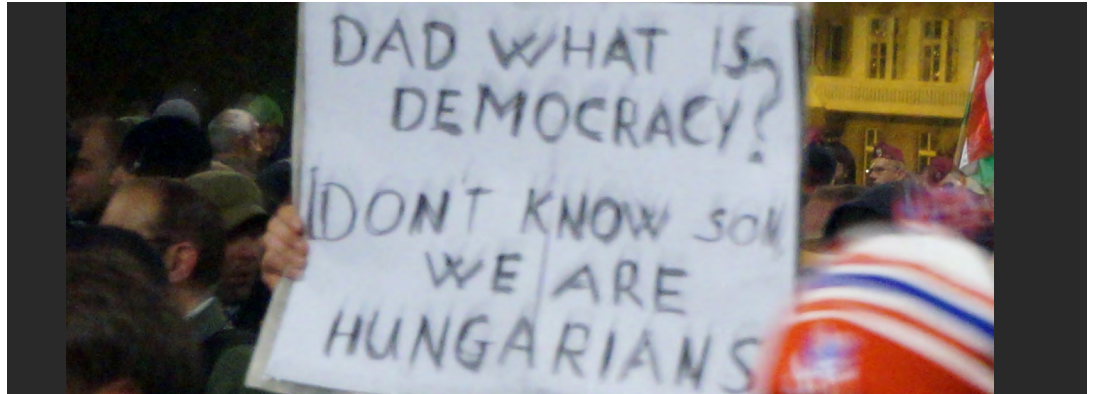 DAD WHAT IS
DEMOCRACY?
I DON'T KNOW SON,
WE ARE
HUNGARIANS